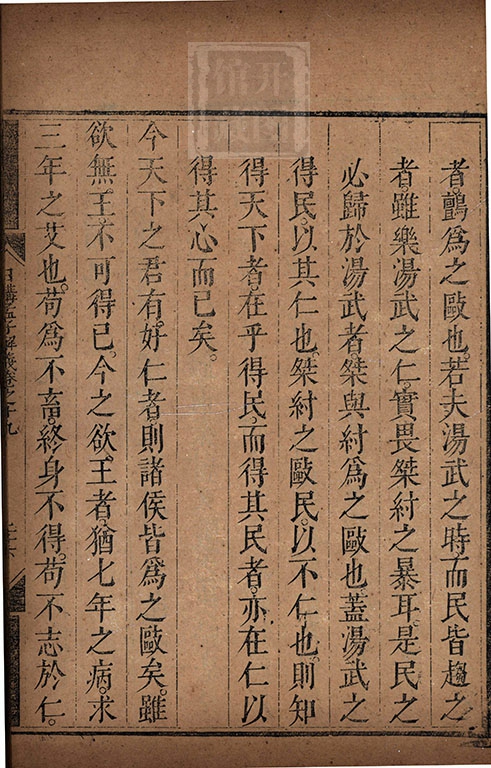 者鸇爲之敺也。若夫湯武之時。而民皆趨之
者。雖樂湯武之仁。實畏桀紂之暴耳。是民之
必歸於湯武者。桀與紂爲之敺也。蓋湯武之
得民。以其仁也。桀紂之敺民。以不仁也。則知
得天下者。在乎得民。而得其民者。亦在仁以
得其心而已矣。
今天下之君有。好仁者則諸侯皆爲之敺矣。雖
欲無王不可得已。今之欲王者。猶七年之病。求
三年之艾也。苟爲不畜。終身不得。苟不志於仁。
日講孟子解義卷之十九